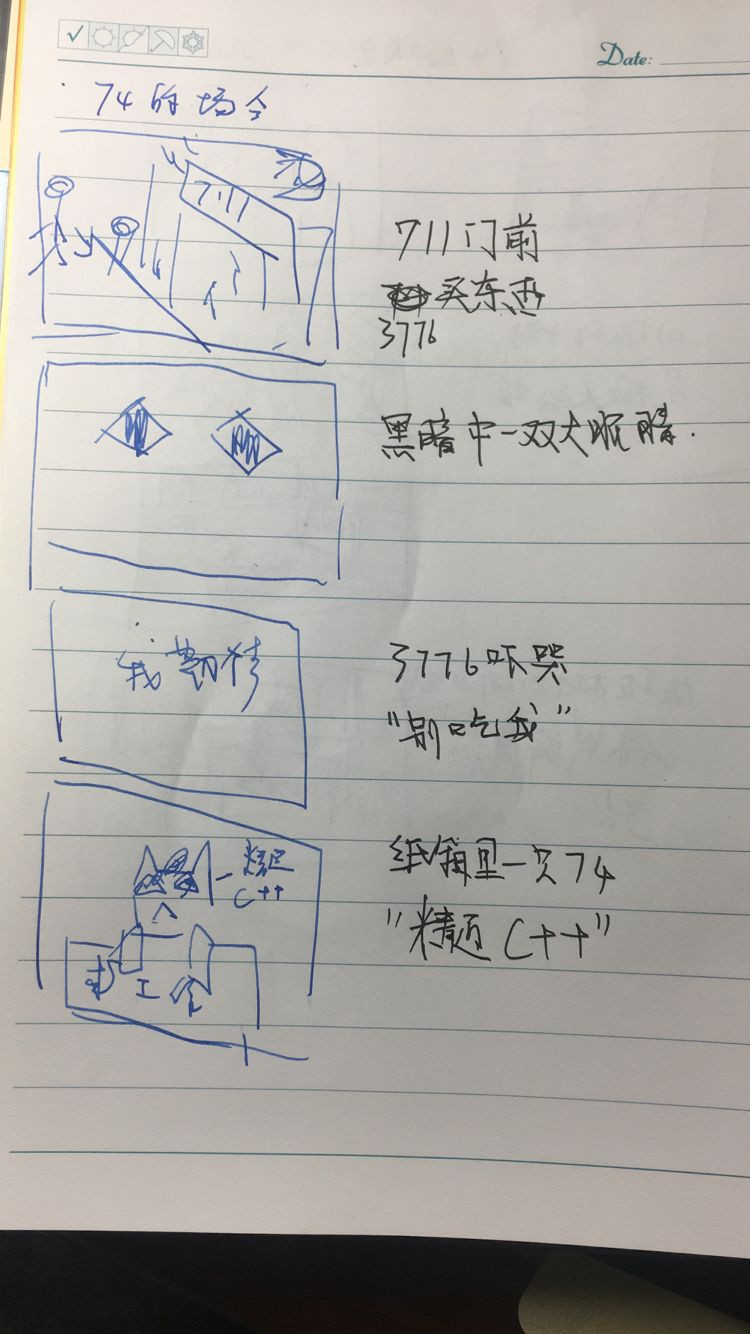 Date:
74的场合
7·11
711门前
买东西
3776
黑暗中一双大眼睛.
3776吓哭
"别吃我"
纸箱里一只74
精通
C++
"精通C++"
求
工